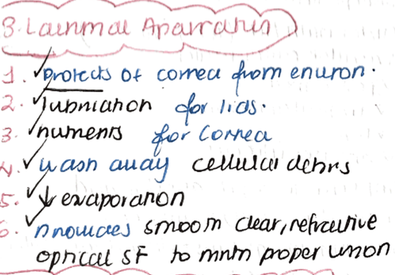 3. Lacrimal Apparatus
1. ✓protects of cornea from environ.
2. ✓lubrication for lids.
3. ✓nutrients for cornea
4. ✓wash away cellular debris
5. ✓↓ evaporation
6. ✓provides smooth clear, refractive
optical SF to mntn proper vision